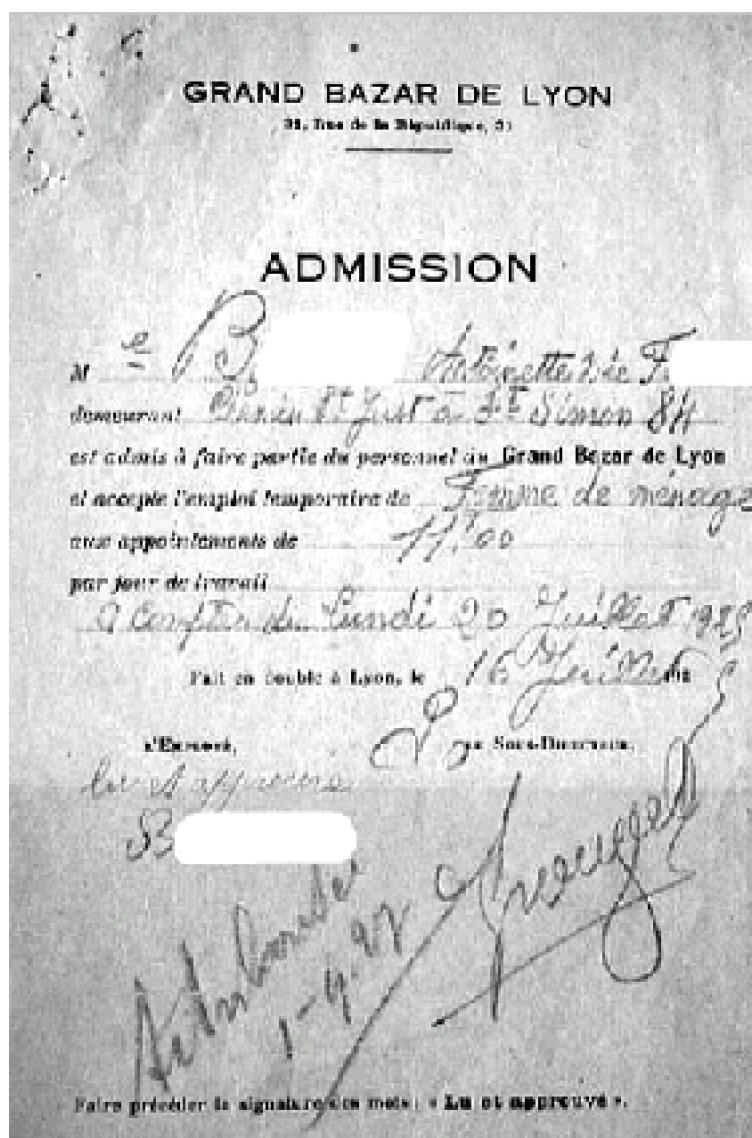 GRAND BAZAR DE LYON
31, Rue de la République, 31
ADMISSION
M e B Antoinette née F
demeurant Chemin St Just à St Simon 84
est admis à faire partie du personnel du Grand Bazar de Lyon
et accepte l'emploi temporaire de Femme de ménage
aux appointements de 11f00
par jour de travail
à compter du Lundi 20 Juillet 1925
Fait en double à Lyon, le 16 Juillet
L'Employé, Le Sous-Directeur,
lu et approuvé
B
1-9-27
Faire précéder la signature des mots : « Lu et approuvé ».